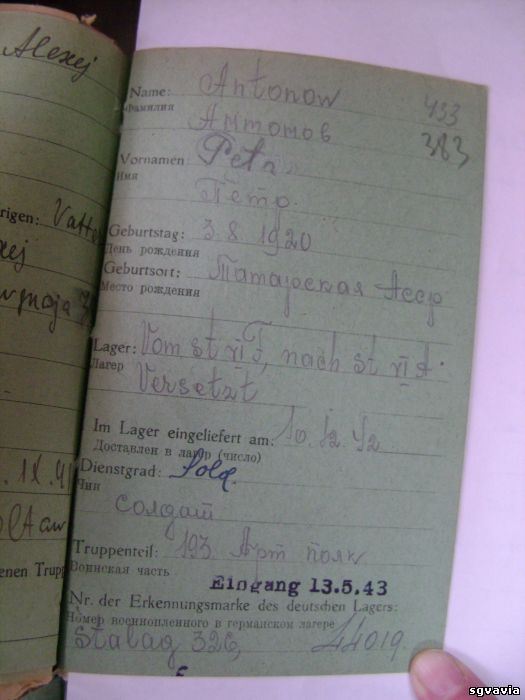 Alexej
Name: Antonow
Фамилия
433
Антонов
383
Vornamen Petr
Имя
Пётр.
rigen: Vatter
Geburtstag: 3.8.1920
День рождения
xej
Geburtsort: Татарская Асср
Место рождения
Lager: Vom st VI J, nach st VI A.
Лагерь
Versetzt
Im Lager eingeliefert am: 10.12.42
Доставлен в лагерь (число)
. IX. 41
Dienstgrad: Sold.
Чин
солдат
Truppenteil: 193. Арт полк
Воинская часть
enen Trupp
Eingang 13.5.43
Nr. der Erkennungsmarke des deutschen Lagers:
Номер военнопленного в германском лагере
Stalag 326, 44019.
sgvavia